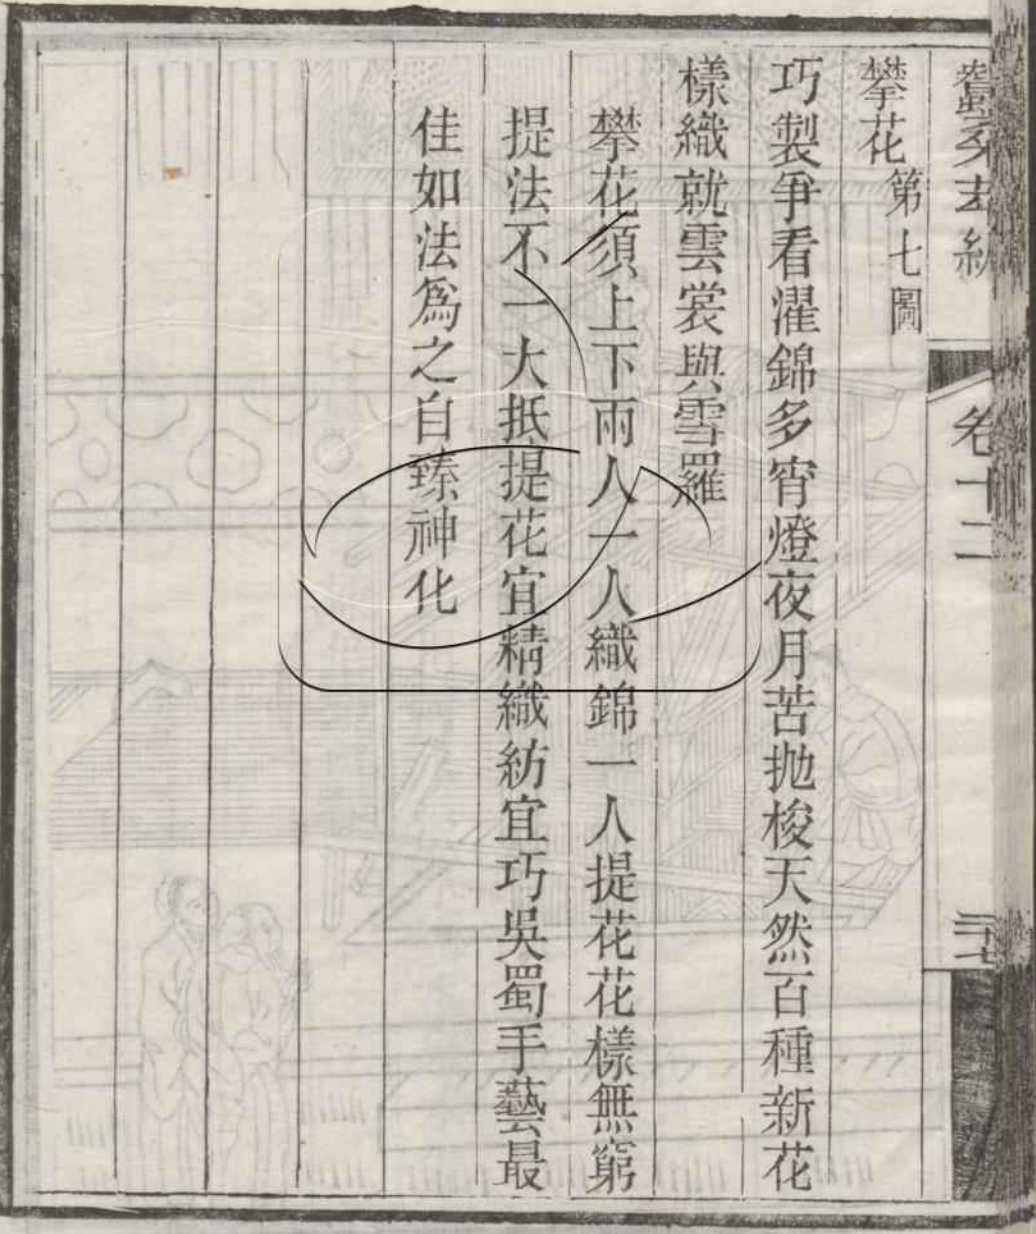 攀花第七圖
巧製爭看濯錦多宵燈夜月苦抛梭天然百種新花
樣織就雲裳與雪羅
攀花須上下兩人一人織錦一人提花花樣無窮
提法不一大抵提花宜精織紡宜巧吳蜀手藝最
佳如法爲之自臻神化
卷十二